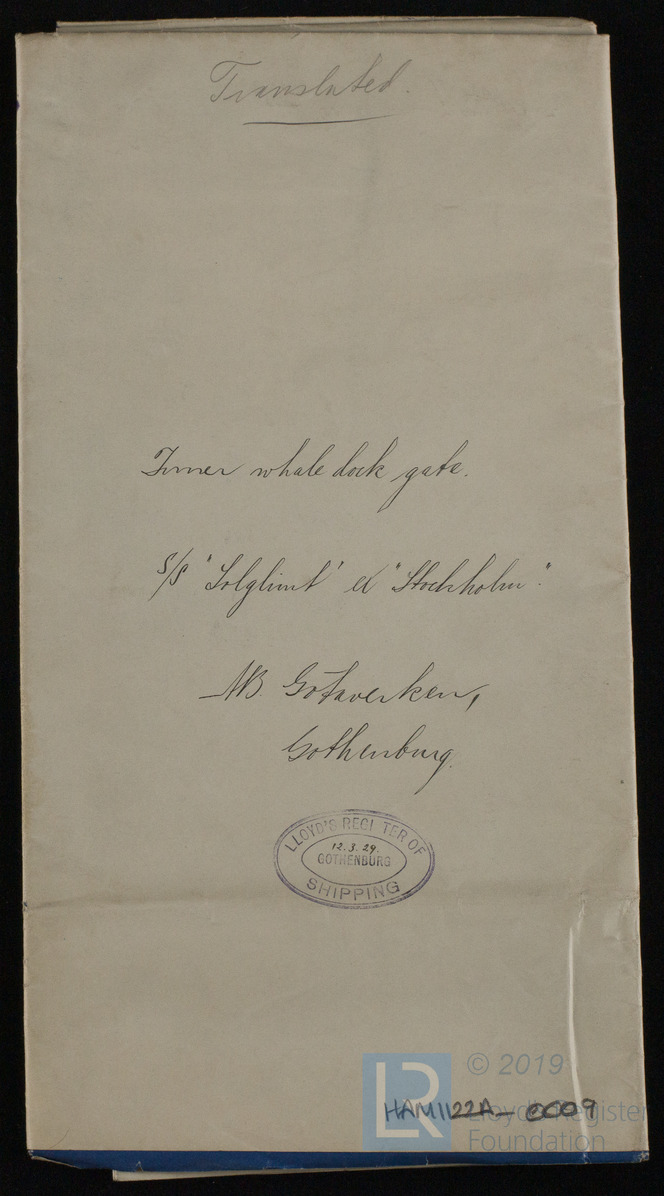 Translated.
Inner whale dock gate.
S/S "Solglimt" ex "Stockholm".
A/B. Götaverken,
Gothenburg.
LLOYD'S REGISTER OF
12.3.29.
GOTHENBURG
SHIPPING
LR
© 2019
HAM1122A-0009
Lloyd's Register
Foundation